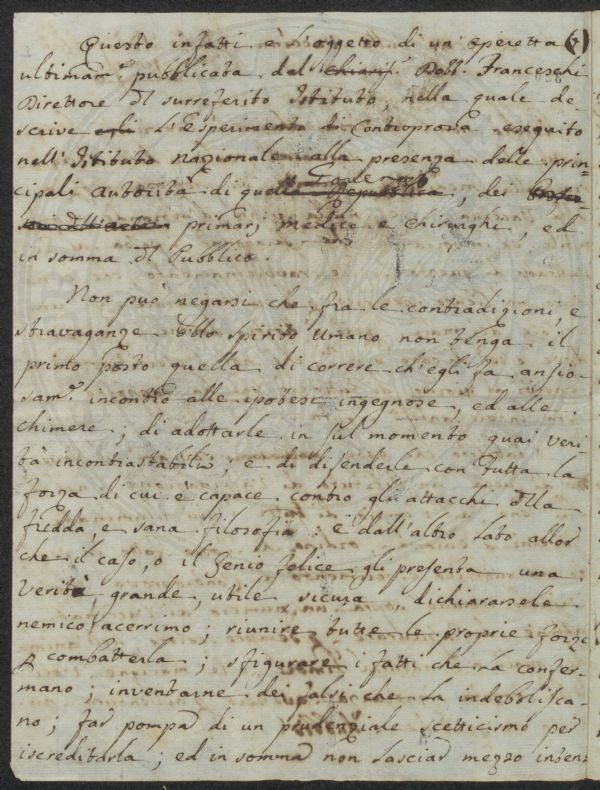 Questo infatti è l'oggetto di un' operetta (7)
ultimam.e pubblicata dal chiariss.o Dott. Franceschi
Direttore dl surreferito Istituto, nella quale de-
scrive egli l'Esperimento di Controprova eseguito
nell'Istituto Nazionale alla presenza delle prin=
cipali autorità di quella Repubblica, dei
primarj medici e chirurghi, ed
in somma dl Pubblico.
Non può negarsi che fra le contradizioni, e
stravaganze dllo spirito umano non tenga il
primo posto quella di correre ch'egli fa ansio-
sam.e incontro alle ipotesi ingegnose, ed alle
chimere; di adottarle in sul momento quai veri-
tà incontrastabili; e di difenderle con tutta la
forza di cui è capace contro gli attacchi dlla
fredda, e sana filosofia: e dall'altro lato allor
che il caso, o il Genio felice gli presenta una
verità grande, utile sicura, dichiararsele
nemico acerrimo; riunire tutte le proprie forze
p combatterla; sfigurare i fatti che la confer-
mano; inventarne dei falsi che la indebolisca-
no; far pompa di un prudenziale scetticismo per
iscreditarla; ed in somma non lasciar mezzo inten